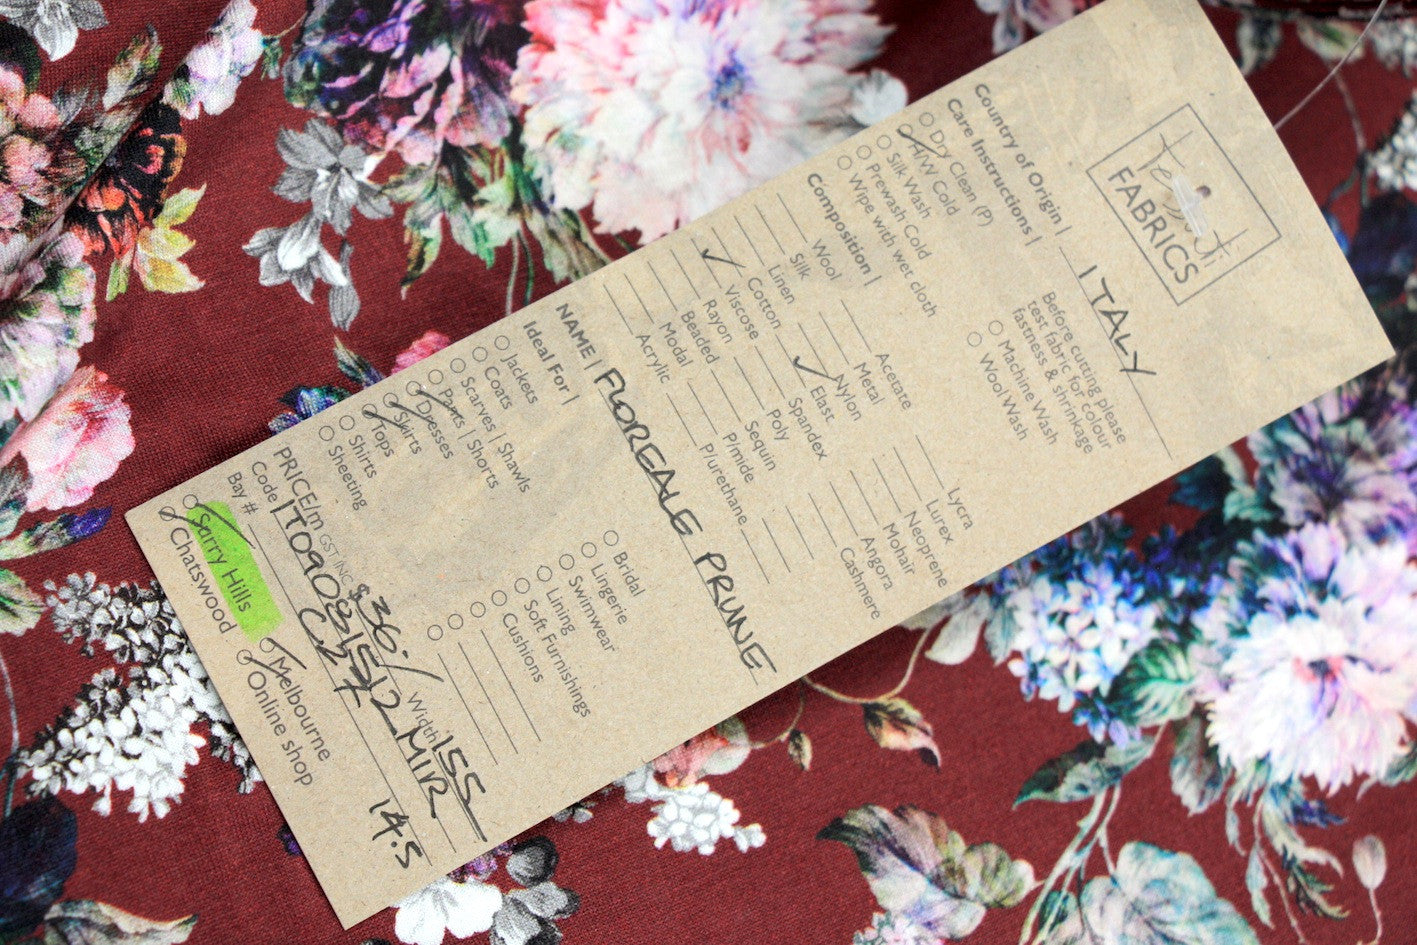 FABRICS
Country of Origin | ITALY
Care Instructions |
Dry Clean (P)
H/W Cold
Silk Wash
Prewash Cold
Wipe with wet cloth
Before cutting please
test fabric for colour
fastness & shrinkage
Machine Wash
Wool Wash
Composition |
Wool
Silk
Linen
Cotton
Viscose
Rayon
Beaded
Modal
Acrylic
Acetate
Metal
Nylon
Elast
Spandex
Poly
Sequin
P/mide
P/urethane
Lycra
Lurex
Neoprene
Mohair
Angora
Cashmere
NAME | FLOREALE PRUNE
Ideal For |
Jackets
Coats
Scarves | Shawls
Pants | Shorts
Dresses
Skirts
Tops
Shirts
Sheeting
Bridal
Lingerie
Swimwear
Lining
Soft Furnishings
Cushions
PRICE/m GST INC $36./ Width 155
Code 1T09081512MIR
Bay # C27 14.5
Surry Hills
Chatswood
Melbourne
Online shop